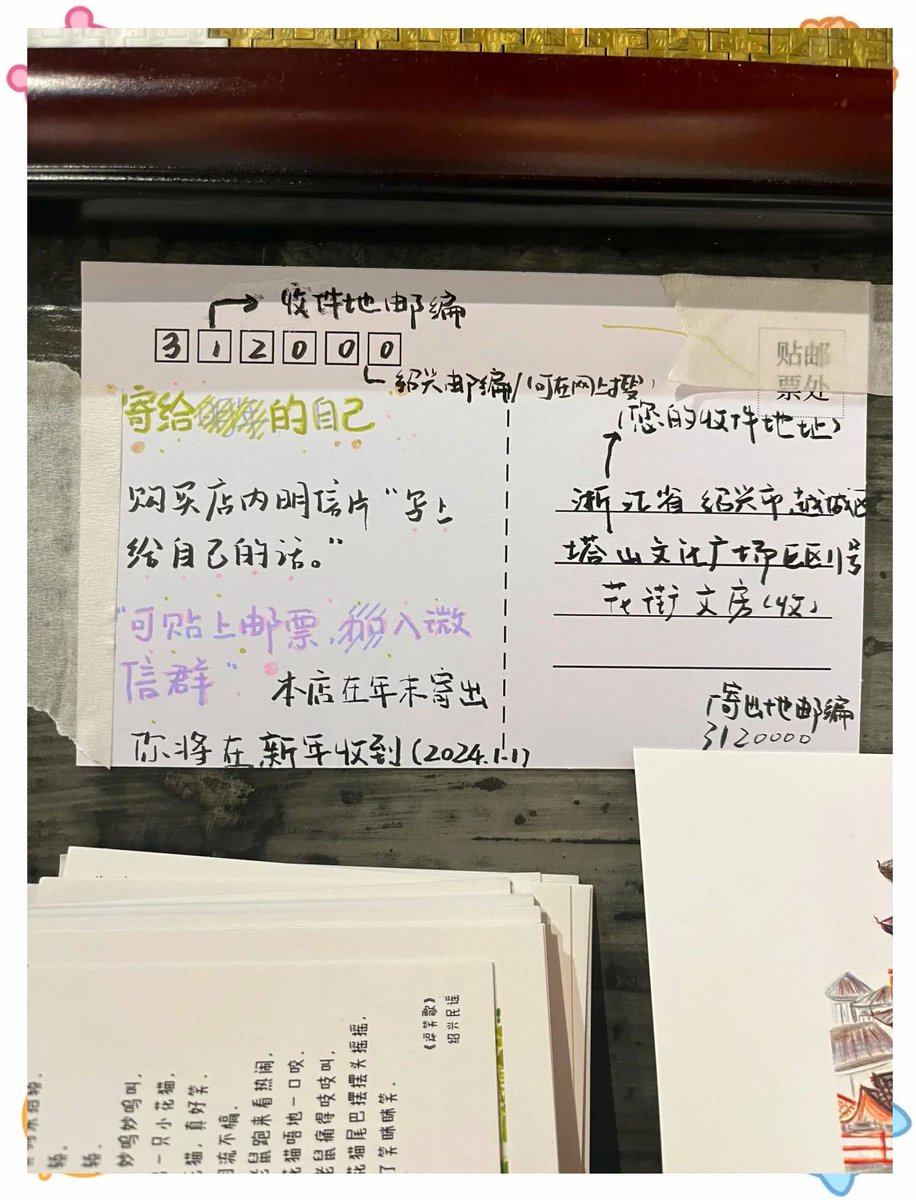 收件地邮编
312000
绍兴邮编/(可在网上搜)
寄给的自己
购买店内明信片“写上
给自己的话。”
“可贴上邮票,入微
信群”
本店在年末寄出
你将在新年收到(2024.1.1)
贴邮
票处
(您的收件地址)
浙江省绍兴市越城区
塔山文化广场E区11号
花街文房(收)
寄出地邮编
3120000
《逗笑歌》
绍兴民谣
花猫尾巴摆摆头摇摇,
老鼠痛得吱吱叫,
花猫唔地一口咬,
老鼠跑来看热闹,
一只小花猫,
猫,真好笑。
了笑眯眯笑。
妙呜妙呜叫,